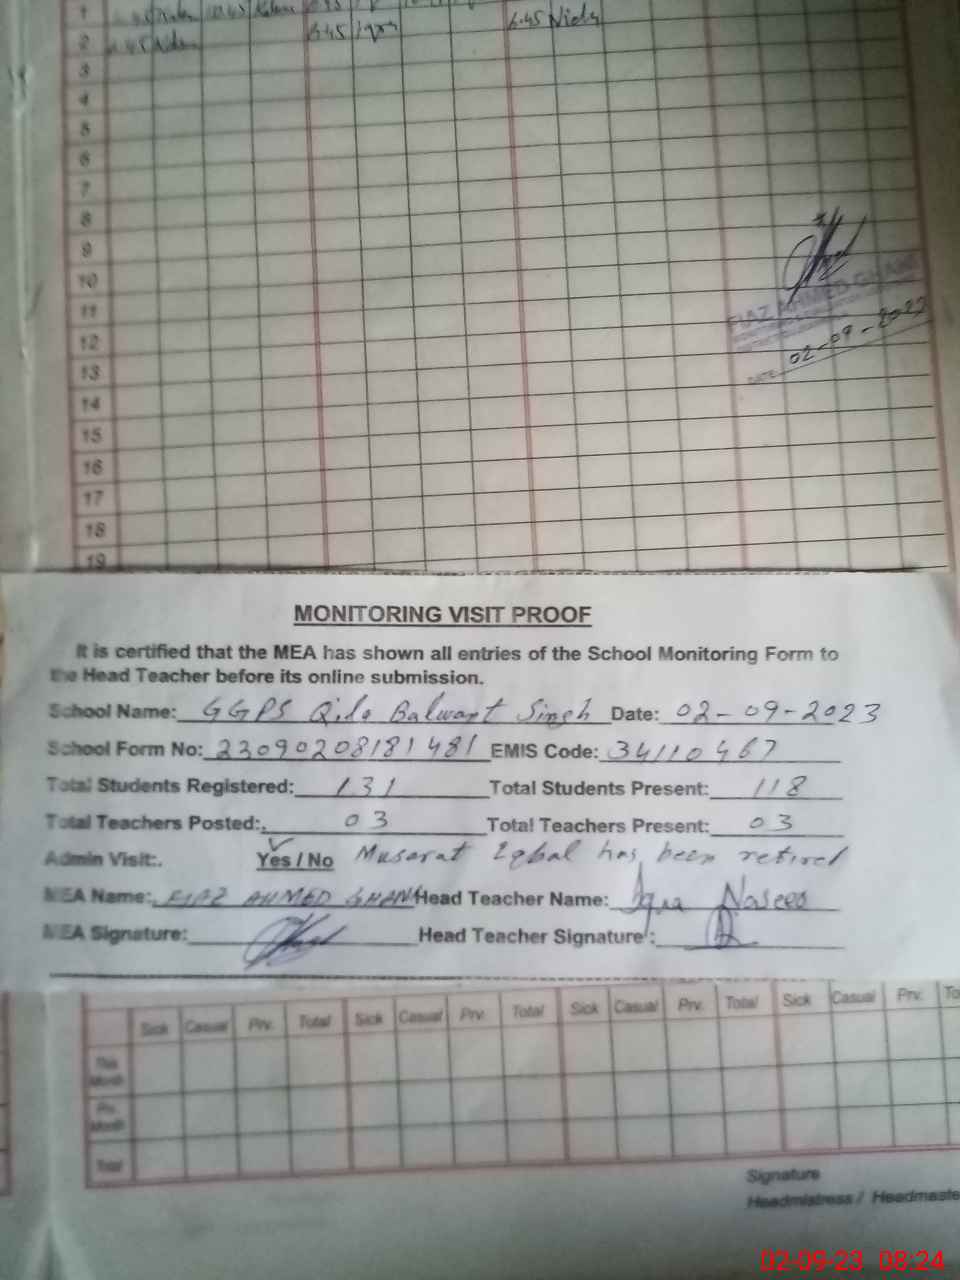 1
2 6.45
3
4
5
6
7
8
9
10
11
12
13
14
15
16
17
18
19
FIAZ AHMED GHANI
DATE: 02-09-2023
MONITORING VISIT PROOF
It is certified that the MEA has shown all entries of the School Monitoring Form to
the Head Teacher before its online submission.
School Name: GGPS Qila Balwant Singh Date: 02-09-2023
School Form No: 23090208181481 EMIS Code: 34110467
Total Students Registered: 131 Total Students Present: 118
Total Teachers Posted:. 03 Total Teachers Present: 03
Admin Visit:. Yes / No Musarat Iqbal has been retired
MEA Name: FIAZ AHMED GHANI Head Teacher Name: Iqra Naseer
MEA Signature: Head Teacher Signature :
Sick Casual Prv. Total Sick Casual Prv. Total Sick Casual Prv. Total Sick Casual Prv. To
This Month
Pre. Month
Total
Signature
Headmistress / Headmaste
02-09-23 08:24